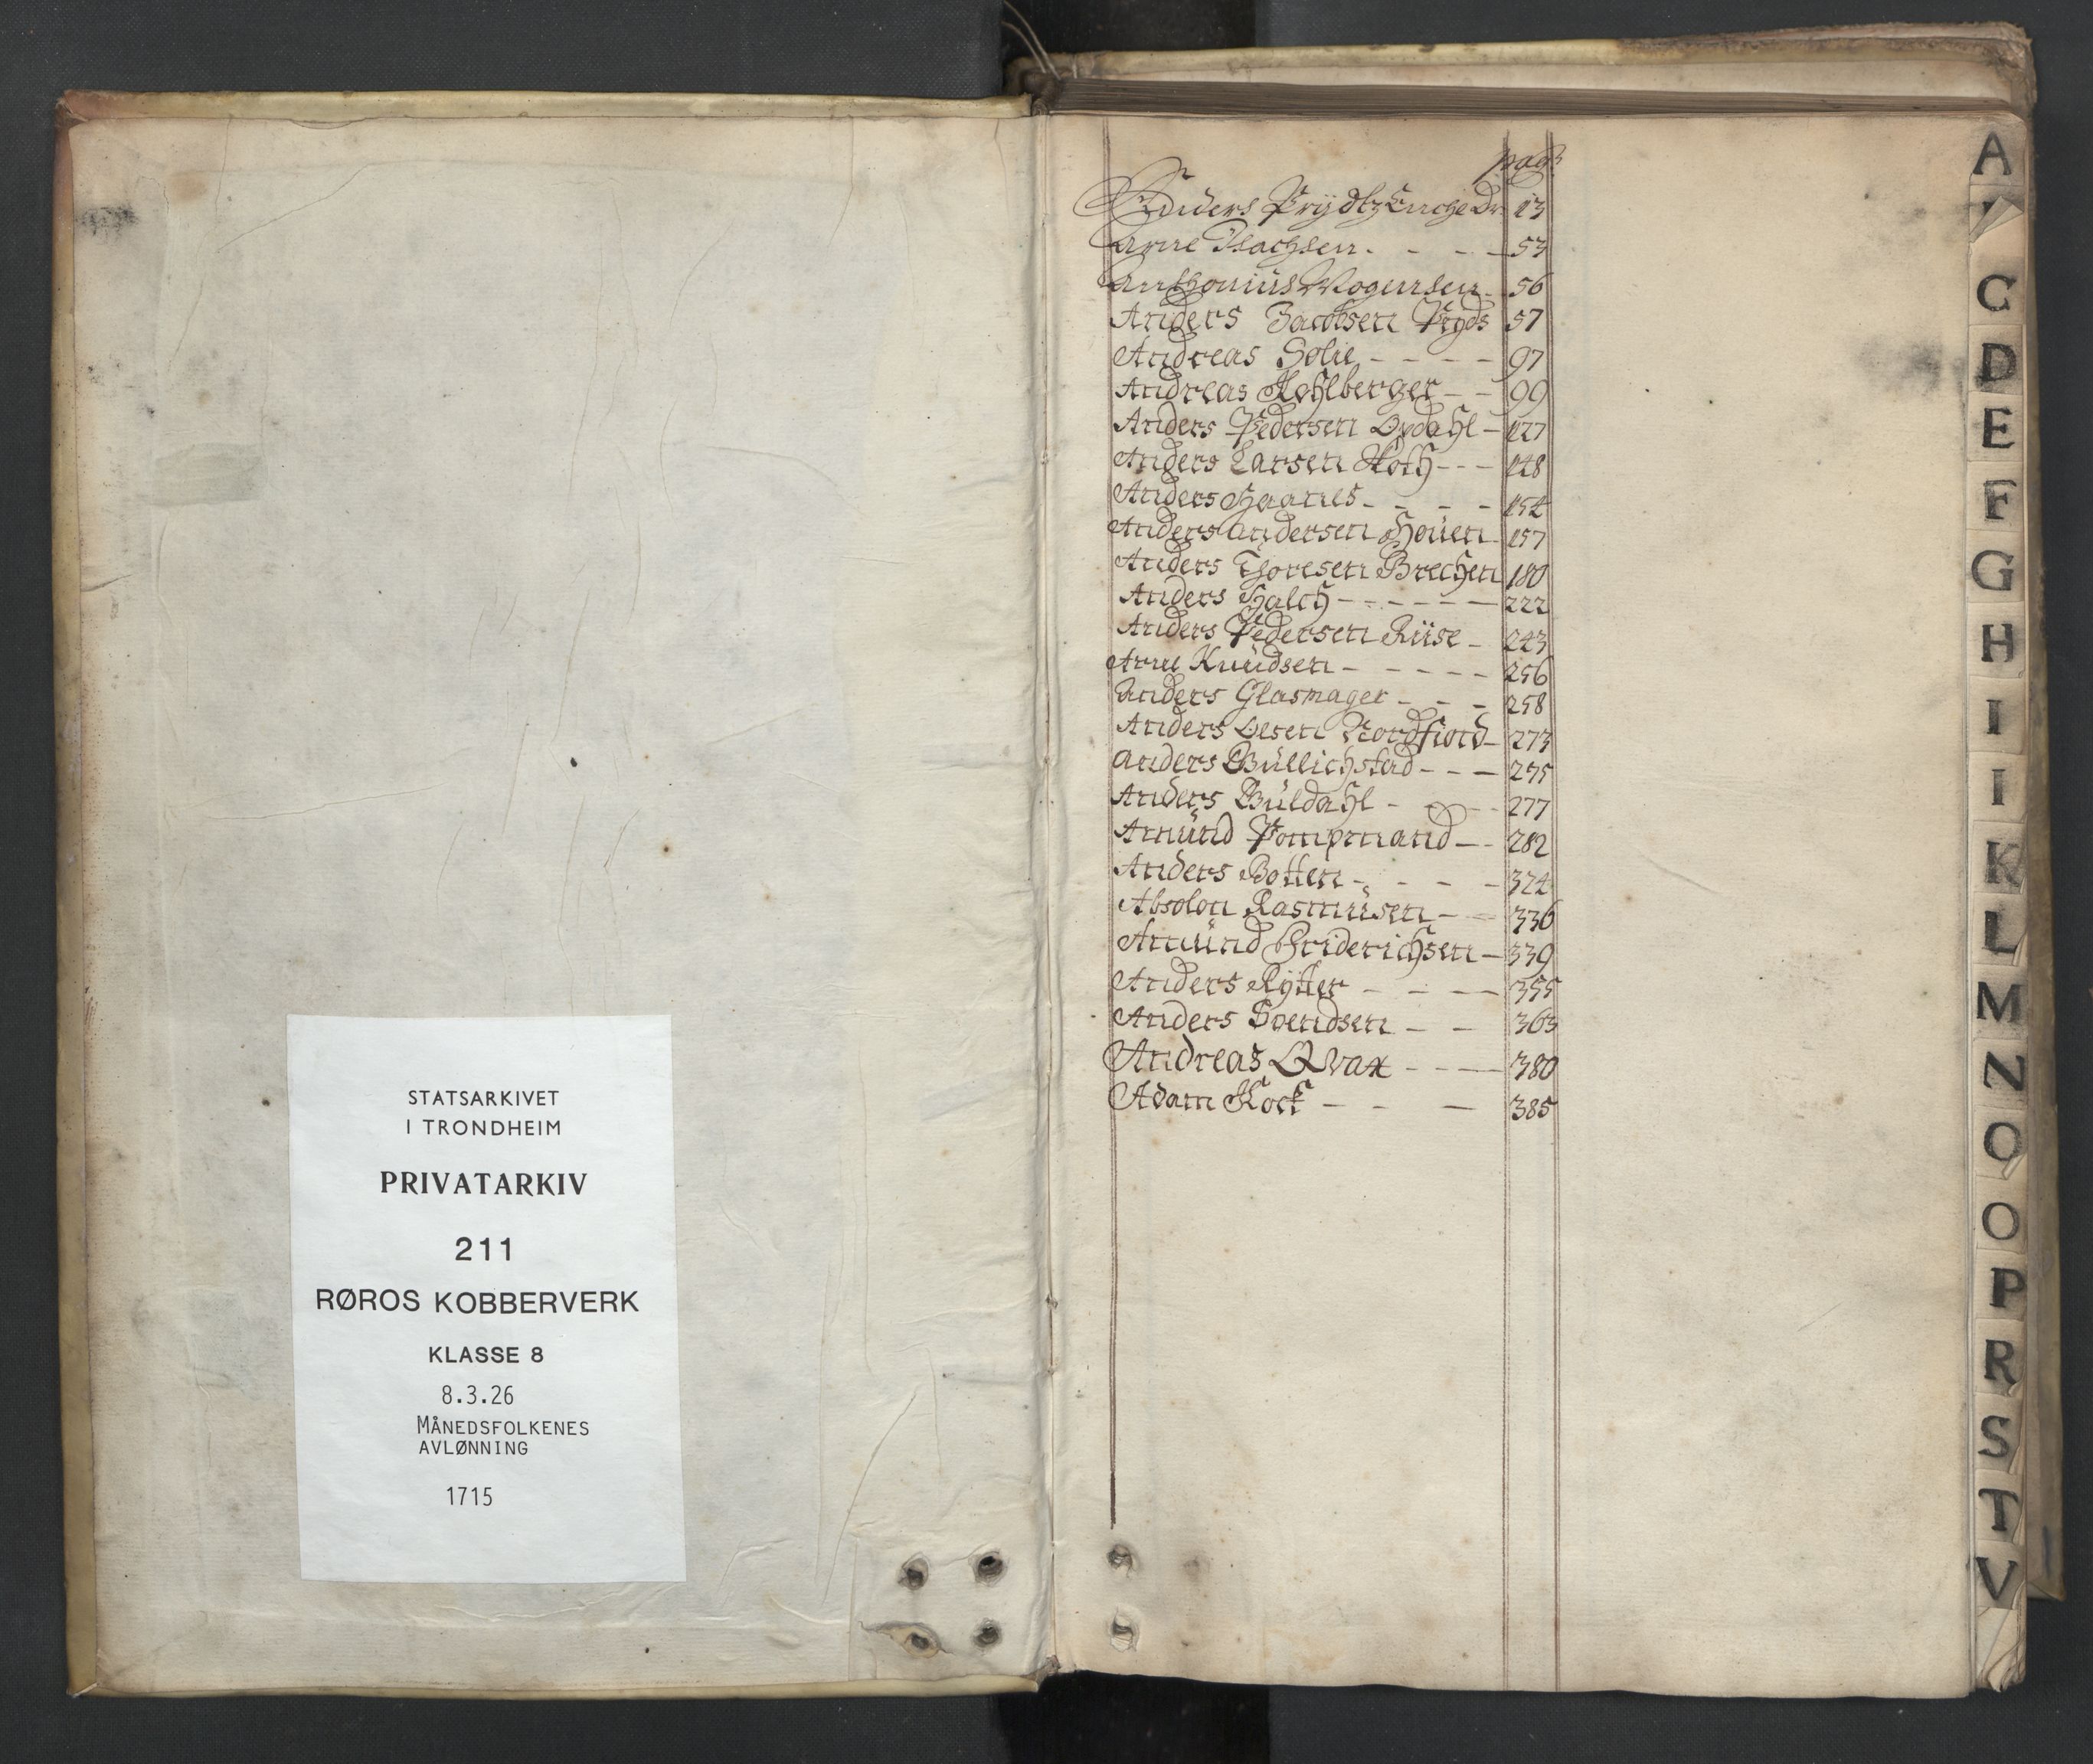 STATSARKIVET
I TRONDHEIM
PRIVATARKIV
211
RØROS KOBBERVERK
KLASSE 8
8.3.26
MÅNEDSFOLKENES
AVLØNNING
1715
pag:
Anders Prydtz Enche Dr. 13
Arne Isachsen - - - - 53
Anthonius Mogensen - 56
Anders Jacobsen Pryds 57
Andreas Solie - - - - 97
Andreas Kohlberger - - 99
Anders Pedersen Opdahl - 127
Anders Larsen Koth - - - 148
Anders Haanes - - - - 154
Anders Andersen Houen - 157
Anders Thoresen Brechen 180
Anders Halch - - - - - - 222
Anders Pedersen Riise - 243
Arne Knudsen - - - - - 256
Anders Glasmager - - - 258
Anders Olsen Nordfiord - 273
Anders Bullichstad - - - 275
Anders Buldahl - - - 277
Amund Pompmand - - 282
Anders Botten - - - - 324
Absolon Rasmusen - - 336
Amund Friderichsen - 339
Anders Rytter - - - - 355
Anders Svendsen - - 363
Andreas Qvax - - - - 380
Adam Kock - - - 385
A
C
D
E
F
G
H
I
I
K
L
M
N
O
O
P
R
S
T
V